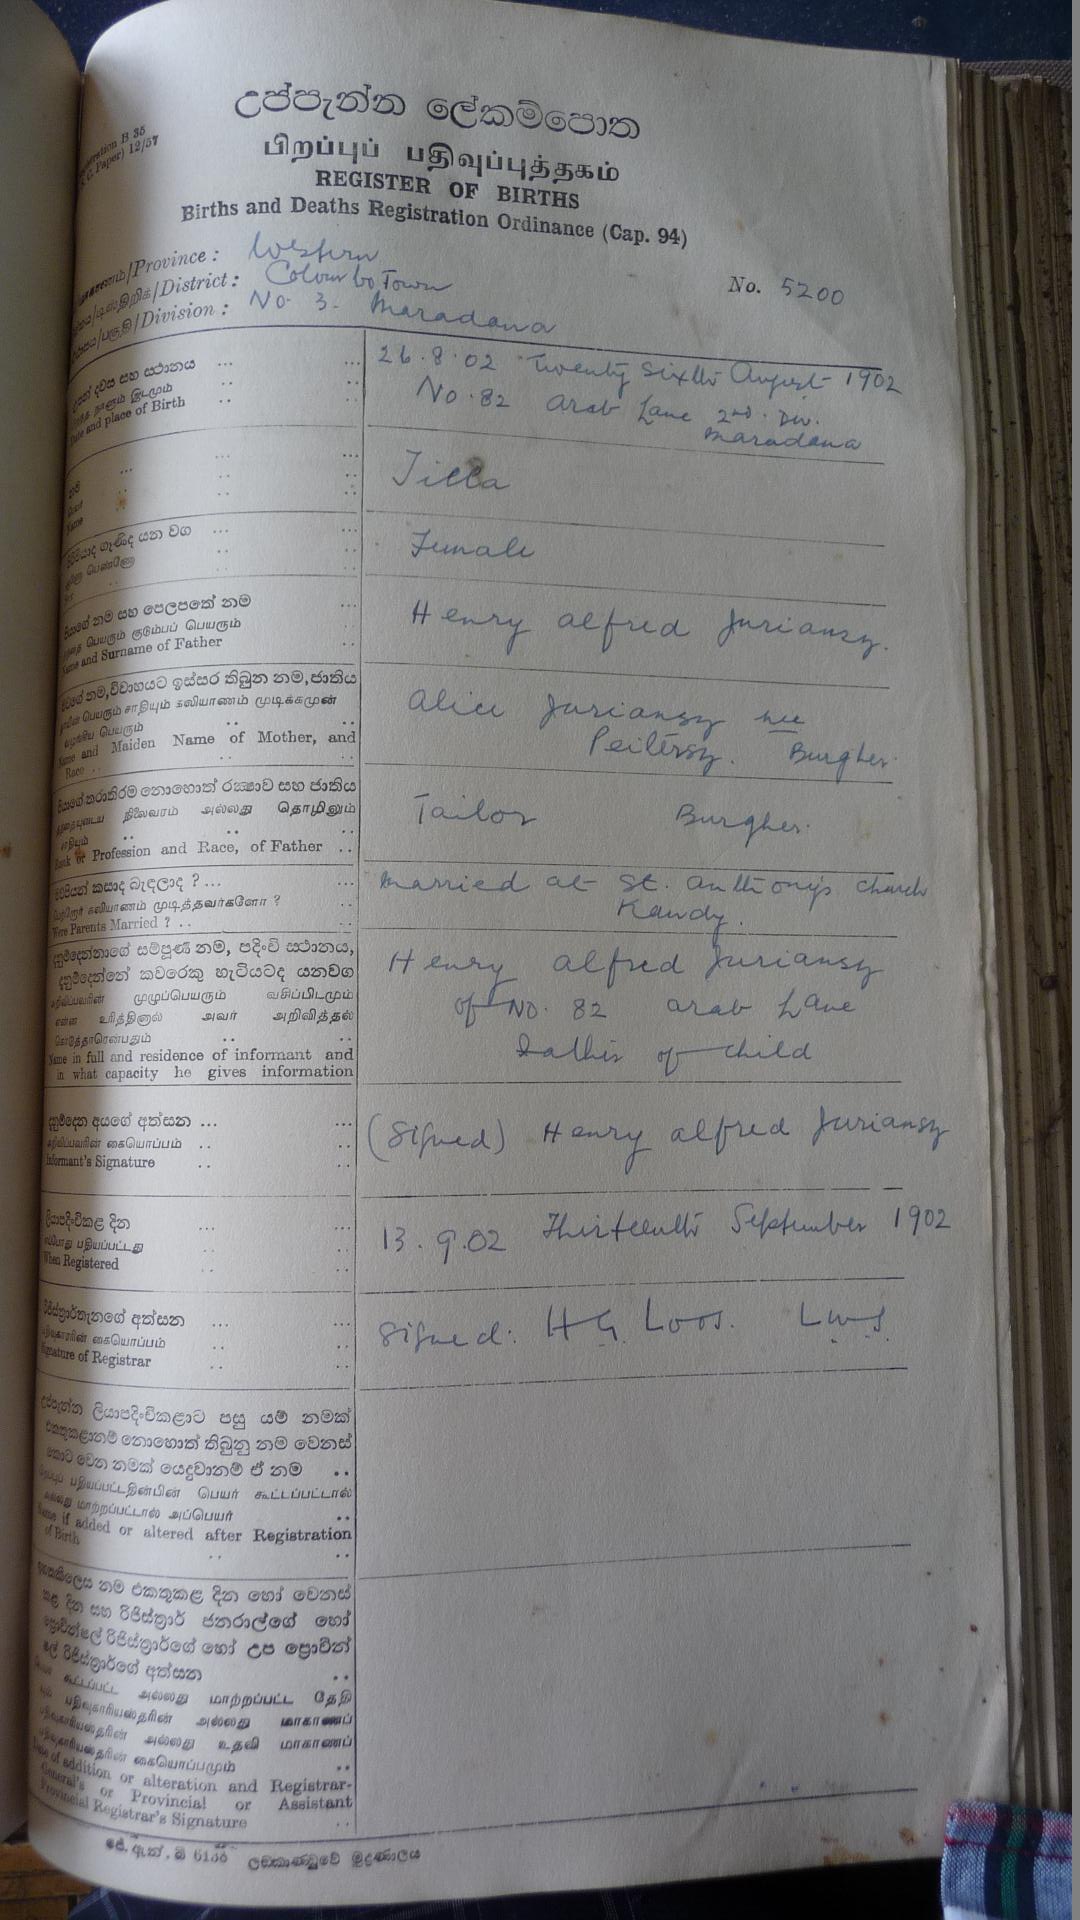 උප්පැන්න ලේකම්පොත
பிறப்புப் பதிவுப்புத்தகம்
REGISTER OF BIRTHS
Births and Deaths Registration Ordinance (Cap. 94)
B 35
G. Paper) 12/57
/Province : Western
/District : Colombo Town
/Division : No. 3. Maradana
No. 5200
උපන් දවස සහ ස්ථානය ... ...
Date and place of Birth
26.8.02 Twenty Sixth August 1902
No. 82 Arab Lane 2nd. Div.
Maradana
නම
Name
Tilla
ගැණිද යන වග ... ...
Female
පියාගේ නම සහ පෙලපතේ නම ...
பெயரும் குடும்பப் பெயரும்
Name and Surname of Father
Henry Alfred Juriansz.
මවගේ නම, විවාහයට ඉස්සර තිබුන නම, ජාතිය
பெயரும் சாதியும் கலியாணம் முடிக்கமுன்
வழங்கிய பெயரும்
Name and Maiden Name of Mother, and
Race
Alice Juriansz nee
Peitersz. Burgher.
පියාගේ තරාතිරම නොහොත් රක්ෂාව සහ ජාතිය
நிலைவரம் அல்லது தொழிலும்
சாதியும்
Rank or Profession and Race, of Father
Tailor Burgher.
දෙමව්පියන් කසාද බැඳලාද ? ... ...
பெற்றோர் கலியாணம் முடித்தவர்களோ ?
Were Parents Married ?
Married at St. Anthony's Church
Kandy.
දැනුම්දෙන්නාගේ සම්පූර්‍ණ නම, පදිංචි ස්ථානය,
දැනුම්දෙන්නේ කවරෙකු හැටියටද යනවග
அறிவிப்பவரின் முழுப்பெயரும் வசிப்பிடமும்
என்ன உரித்தினால் அவர் அறிவித்தல்
கொடுத்தாரென்பதும்
Name in full and residence of informant and
in what capacity he gives information
Henry Alfred Juriansz
of No. 82 Arab Lane
Father of child
දැනුම්දෙන අයගේ අත්සන ... ...
அறிவிப்பவரின் கையொப்பம்
Informant's Signature
(Signed) Henry Alfred Juriansz
ලියාපදිංචිකළ දින ... ...
எப்போது பதியப்பட்டது
When Registered
13.9.02 Thirteenth September 1902
රෙජිස්ත්‍රාර්තැනගේ අත්සන ... ...
பதிவுகாரரின் கையொப்பம்
Signature of Registrar
Signed: H G Loos.
උප්පැන්න ලියාපදිංචිකළාට පසු යම් නමක්
එකතුකළානම් නොහොත් තිබුනු නම වෙනස්
කොට වෙන නමක් යෙදුවානම් ඒ නම
பிறப்புப் பதியப்பட்டதின்பின் பெயர் கூட்டப்பட்டால்
அல்லது மாற்றப்பட்டால் அப்பெயர்
Name if added or altered after Registration
of Birth
නම එකතුකළ දින හෝ වෙනස්
කළ දින සහ රිජිස්ත්‍රාර් ජනරාල්ගේ හෝ
ප්‍රොවින්ෂල් රිජිස්ත්‍රාර්ගේ හෝ උප ප්‍රොවින්
ෂල් රිජිස්ත්‍රාර්ගේ අත්සන
கூட்டப்பட்ட அல்லது மாற்றப்பட்ட தேதி
பதிவுகாரியஸ்தரின் அல்லது மாகாணப்
பதிவுகாரியஸ்தரின் அல்லது உதவி மாகாணப்
பதிவுகாரியஸ்தரின் கையொப்பமும்
Date of addition or alteration and Registrar-
General's or Provincial or Assistant
Provincial Registrar's Signature
ලංකාණ්ඩුවේ මුද්‍රණාලය